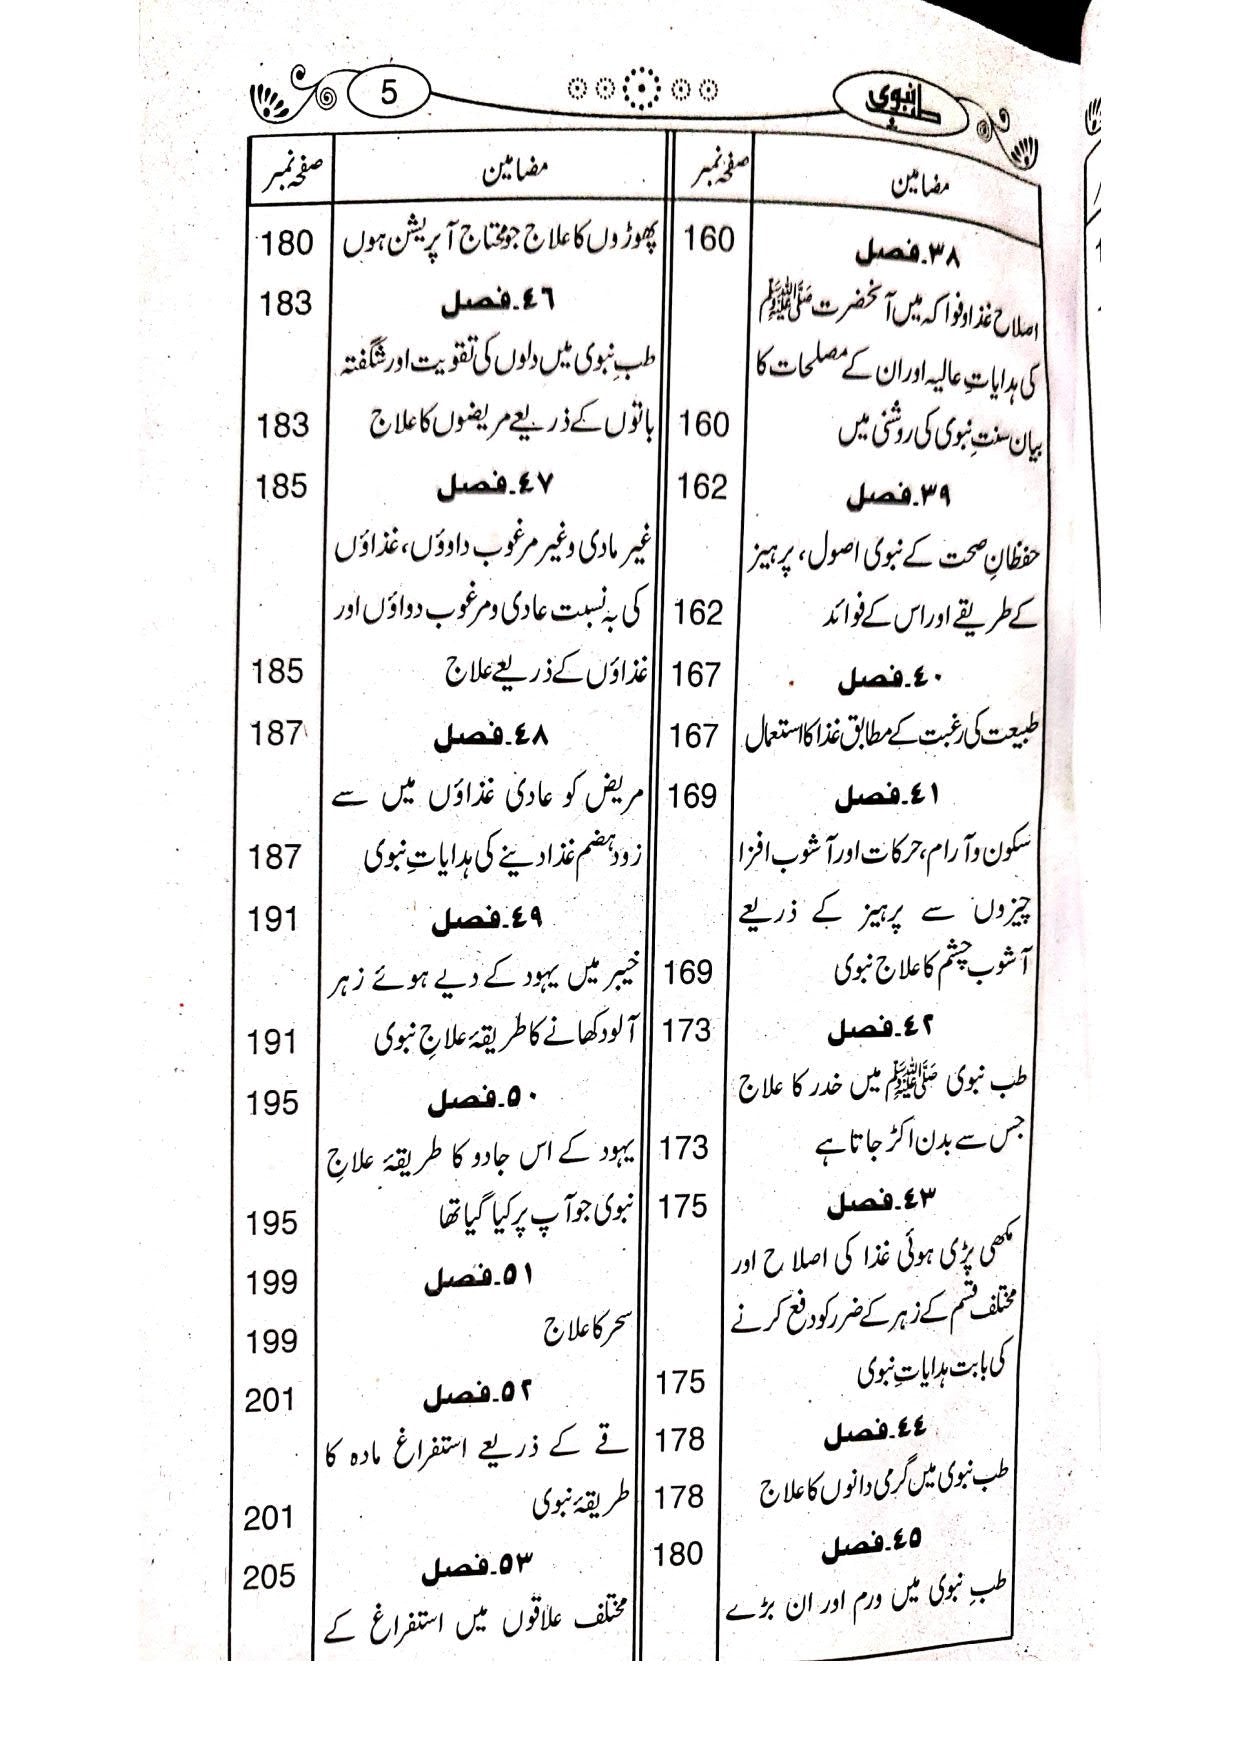 طب نبوی
5
مضامین صفحہ نمبر
۳۸۔فصل 160
اصلاح غذا و فواکہ میں آنحضرت ﷺ
کی ہدایاتِ عالیہ اور ان کے مصلحات کا
بیان سنتِ نبوی کی روشنی میں 160
۳۹۔فصل 162
حفظانِ صحت کے نبوی اصول، پرہیز
کے طریقے اور اس کے فوائد 162
٤٠۔فصل 167
طبیعت کی رغبت کے مطابق غذا کا استعمال 167
٤١۔فصل 169
سکون و آرام، حرکات اور آشوب افزا
چیزوں سے پرہیز کے ذریعے
آشوب چشم کا علاج نبوی 169
٤٢۔فصل 173
طب نبوی ﷺ میں خدر کا علاج
جس سے بدن اکڑ جاتا ہے 173
٤٣۔فصل 175
مکھی پڑی ہوئی غذا کی اصلاح اور
مختلف قسم کے زہر کے ضرر کو دفع کرنے
کی بابت ہدایاتِ نبوی 175
٤٤۔فصل 178
طب نبوی میں گرمی دانوں کا علاج 178
٤٥۔فصل 180
طبِ نبوی میں ورم اور ان بڑے
مضامین صفحہ نمبر
پھوڑوں کا علاج جو محتاج آپریشن ہوں 180
٤٦۔فصل 183
طبِ نبوی میں دلوں کی تقویت اور شگفتہ
باتوں کے ذریعے مریضوں کا علاج 183
٤٧۔فصل 185
غیر مادی و غیر مرغوب داوؤں، غذاؤں
کی بہ نسبت عادی و مرغوب دواؤں اور
غذاؤں کے ذریعے علاج 185
٤٨۔فصل 187
مریض کو عادی غذاؤں میں سے
زود ہضم غذا دینے کی ہدایاتِ نبوی 187
٤٩۔فصل 191
خیبر میں یہود کے دیے ہوئے زہر
آلود کھانے کا طریقۂ علاجِ نبوی 191
٥٠۔فصل 195
یہود کے اس جادو کا طریقۂ علاجِ
نبوی جو آپ پر کیا گیا تھا 195
٥١۔فصل 199
سحر کا علاج 199
٥٢۔فصل 201
قے کے ذریعے استفراغ مادہ کا
طریقۂ نبوی 201
٥٣۔فصل 205
مختلف علاقوں میں استفراغ کے